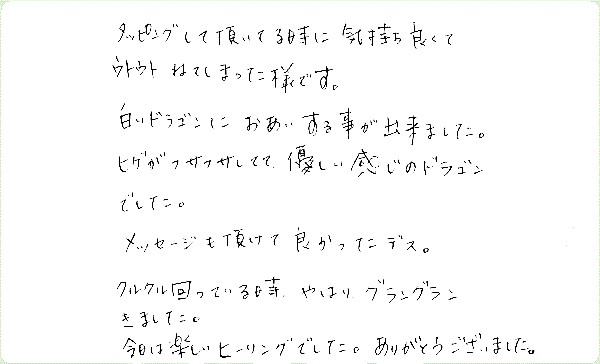 タッピングして頂いてる時に 気持ち良くて
ウトウト ねてしまった様です。
白いドラゴンに おあいする事が出来ました。
ヒゲがフサフサしてて、優しい感じのドラゴン
でした。
メッセージも頂けて 良かったデス。
クルクル回っている時、やはり、グラングラン
きました。
今日は楽しいヒーリングでした。ありがとうございました。